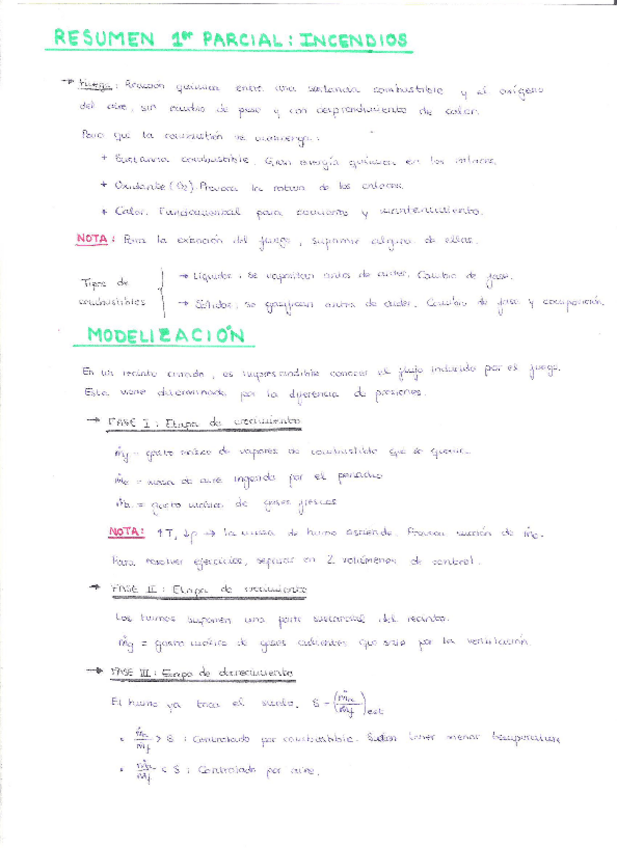 RESUMEN 1er PARCIAL: INCENDIOS
→ Fuego: Reacción química entre una sustancia combustible y el oxígeno
del aire, sin cambio de peso y con desprendimiento de calor.
Para que la combustión se mantenga:
+ Sustancia combustible. Gran energía química en los enlaces.
+ Oxidante (O2). Provoca la rotura de los enlaces.
+ Calor. Fundamental para comienzo y mantenimiento.
NOTA: Para la extinción del fuego, suprimir alguna de ellas.
Tipos de combustibles
→ Líquidos: se vaporizan antes de arder. Cambio de fase.
→ Sólidos: se gasifican antes de arder. Cambio de fase y composición.
MODELIZACIÓN
En un recinto cerrado, es imprescindible conocer el flujo inducido por el fuego.
Este viene determinado por la diferencia de presiones.
→ FASE I: Etapa de crecimiento
ṁf = gasto másico de vapores de combustible que se quema.
ṁe = masa de aire ingerido por el penacho
= gasto másico de gases frescos
NOTA: ↑T, ↓ρ → la masa de humo asciende. Provoca succión de ṁe.
Para resolver ejercicios, separar en 2 volúmenes de control.
→ FASE II: Etapa de crecimiento
Los humos suponen una parte sustancial del recinto.
ṁg = gasto másico de gases calientes que sale por la ventilación.
→ FASE III: Etapa de decrecimiento
El humo ya toca el suelo. S = (ṁa/ṁf)est
• ṁa/ṁf > S : Controlado por combustible. Suelen tener menor temperatura
• ṁa/ṁf < S : Controlado por aire.